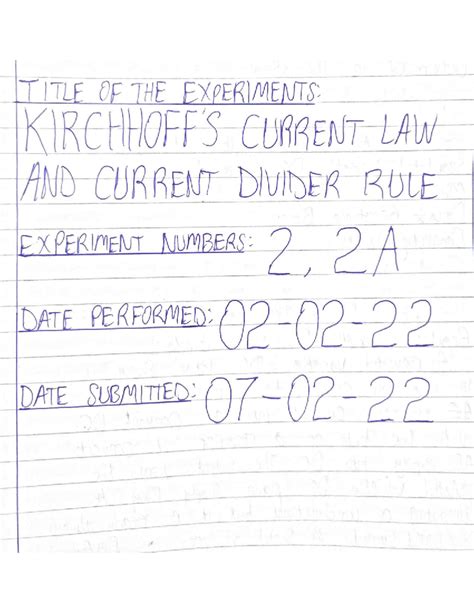 TITLE OF THE EXPERIMENTS:
KIRCHHOFF'S CURRENT LAW
AND CURRENT DIVIDER RULE
EXPERIMENT NUMBERS: 2, 2A
DATE PERFORMED: 02-02-22
DATE SUBMITTED: 07-02-22